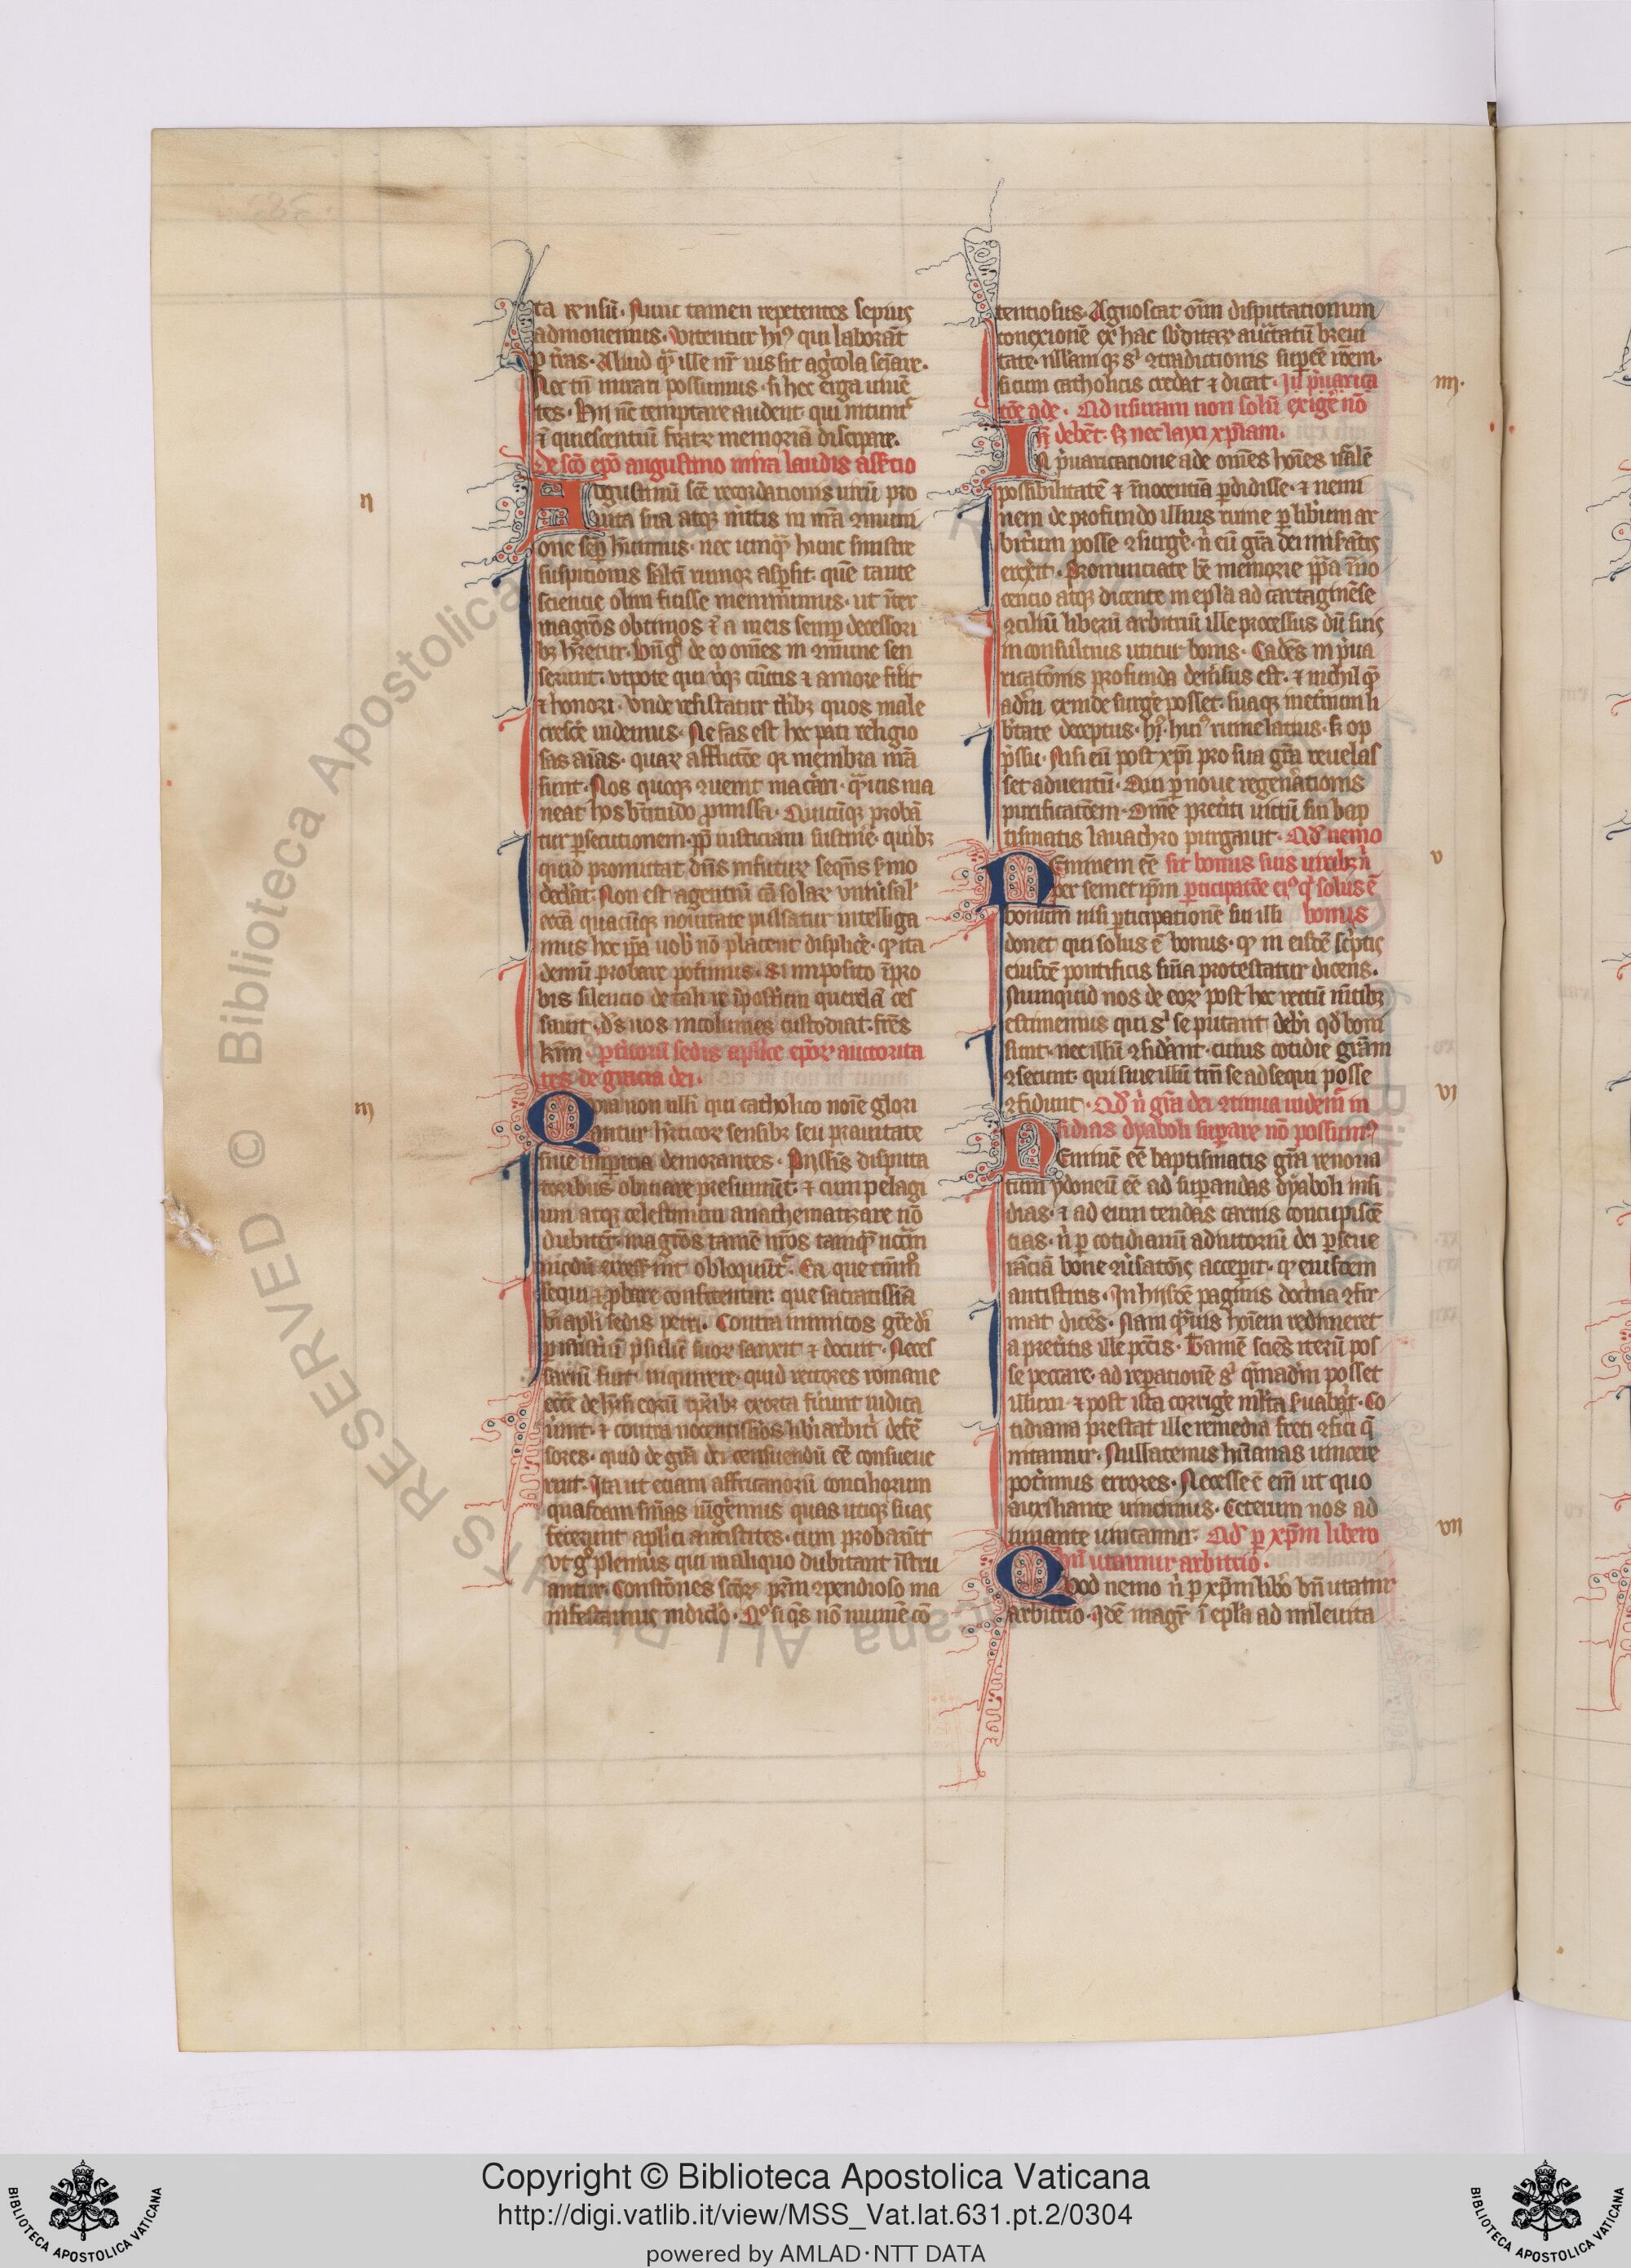 ta rensu͞. Nunc tamen repetentes sepius
admonemus. Vitentur hiꝰ qui laborāt
tes. An nc̄ temptare audent qui nitunt͛
⁊ quiescentiū fratꝝ memoriā discipare.
De sc̄o ep̄o augustino mira laudis ass̄tio
ii
Augustinū sc̄e recordationis uirū pro
uita sua atqꝫ mītis in nr̄a ꝯmuni
one semꝑ huimus. nec umqꝫ hunc sinistre
suspitionis saltī rumor aspsit. quē tante
scientie olim fuisse meminimus. ut int̄er
magr̄os obtimos ⁊ a meis semꝑ decessori
bꝫ hr̄etur. Bn̄ gͦ de eo om̄es in ꝯmune sen
serunt. Vtpote qui ubiqꝫ cūctis ⁊ amore fuit
⁊ honori. Vnde resistatur talibꝫ quos male
cresce͛ uidemus. Nefas est hec pati religio
sas aīas. quaꝝ afflictōe qꝫ membra nr̄a
sunt. Nos quoqꝫ ꝯuenit macerari. qͣuis ma
neat hos bt̄itudo promissa. Quicūqꝫ probā
tur ꝑsecutionem ꝓpt iusticiam sustine͛. quibꝫ
quid promittat dn̄s in futurꝝ seqn̄s sermo
declarat. Non est agentiū cā solaꝝ uniuersalꝭ
ecc̄ia quacūqꝫ nouitate pulsatur intelliga
mus hec ip̄a uobꝭ nō placent displice͛. qꝫ ita
demū probare poterimus. Si imposito īpro
bis silencio de tali re īposterum querela ces
sauit. Ds̄ uos incolumes custodiat. frēs
km̄i. Preteritorū sedis aplice ep̄oꝝ auctorita
tes de gracia dei.
iii
Quia non nulli qui catholico noīe glori
antur hereticoꝝ sensibꝫ seu prauitate
siue imperitia demorantes. Piissīs disputa
toribus obuiare presumūt. ⁊ cum pelagi
um atqꝫ celestinum anathematizare nō
dubitēt. magr̄os tamē nr̄os tamqͣ nc̄cārm
modū excesserint obloquūt͛. Ea que tm̄mͦ
sequi ⁊ probare confitentur. que sacratissīa
bt̄i apl̄i sedis petri. Contra inimicos gr̄e dī
ꝑ ministeriū presulū suoꝝ sanxit ⁊ docuit. Neces
sariū fuit inquirere. quid rectores romane
ecc̄e de heresi eoꝝ tꝑribꝫ exorta fuerint iudica
uerint. ⁊ contra nocentissimos liberi arbitrii defē
sores. quid de gr̄a dei censuendū eē consueue
runt. Ita ut eciam affricanorū conciliorum
quasdam sn̄ias iungeremus quas utiqꝫ suas
fecerunt aplici antistites. cum probarūt
Vt gͦ plenius qui in aliquo dubitant īstru
antur. Constitōnes sc̄oꝝ pr̄m ꝯpendioso ma
nifestamus indiculo. Quo si qͥs nō nimiē cō
tentiosus. Agnoscat om̄m disputationum
conexionē ex hac subditaꝝ auctoritatū breui
tate. nullam qꝫ sͥ ꝯtradictionis superesse rōem.
si cum catholicis credat ⁊ dicat. In preuarica
iiii.
tōe ade. Ad usuram non solū exigere nō
debēt. sꝫ nec laxi xp̄iam.
In preuaricatione ade om̄es hoīes nr̄alē
possibilitatē ⁊ īnocentiā perdidisse. ⁊ nemi
nem de profundo illius ruine ꝑ liberum ar
bitrium posse ꝯsurgere. nͥ eū gr̄a dei miserātis
erexerit. Pronunciate bt̄e memorie pp̄a īno
cencio atqꝫ dicente in epl̄a ad cartaginēse
ꝯciliū liberū arbitriū ille processus dū suis
inconsultius utitur bonis. Cadens in preua
ricatōnis profunda demersus est. ⁊ nichil qͣ
adm̄ exinde surgere posset. suaqꝫ ineternum li
bertate deceptus. hiꝰ huiꝰ ruine latius. sꝫ op
pressu. Nisi eū post xp̄i pro sua gr̄a reuelas
set aduentū. Qui ꝑ noue regeneratōis
purificatōem. Omē preteriti uiciū sui bap
tismatis lauachro purgauit. Qd nemo
v
Neminem eē sit bonus suis uiribꝫ nͥ
per semet ipm̄ ꝑticipatōe eiꝰ qͥ solus ē
bonum nisi ꝑticipationē sui illi bonus
donet qui solus ē bonus. qꝫ in eisdē sc̄ptis
eiusdē pontificis sn̄ia protestatur dicens.
Numquid nos de eoꝝ post hec rectū mentibꝫ
estimemus qui sͥ se putant debere qd̄ boni
sunt. nec illū ꝯsiderant. cuius cotidie gr̄am
ꝯsecunt. qui sine illū tm̄ se adsequi posse
vi
ꝯfidunt. Qd nͥ gr̄a dei ꝯtinua iuuem͛ in
sidias dyaboli superare nō possumꝰ
Neminē eē baptismatis gr̄a renoua
tum ydoneū eē ad superandas dyaboli insi
dias. ⁊ ad euincendas carnis concupiscē
tias. nͥ ꝑ cotidianū adiutoriū dei perseue
ranciā bone ꝯuersatōis acceperit. qꝫ eiusdem
antistitis. In hiisdē paginis doctrina ꝯfir
mat dicēs. Nam qͣuis hoīem redimeret
a preteritis ille pctīs. Tamē sciēs iterū pos
se peccare. ad reparationē sͥ qͣmadm̄ posset
illum. ⁊ post ista corrigere multa seruabat. Co
tidiana prestat ille remedia freti ꝯfisi qꝫ
nitamur. Nullatenus humanas uincere
poterimus errores. Necesse ē em̄ ut quo
auxiliante uincimus. Ceterum nos ad
vii
iuuante uincamur. Qd ꝑ xp̄m libero
bn̄ utamur arbitrio.
Quod nemo nͥ ꝑ xp̄m libero bn̄ utatur
arbitrio. Idē magr̄ ī epl̄a ad mileuita
© Biblioteca Apostolica Vaticana ALL RIGHTS RESERVED
Copyright © Biblioteca Apostolica Vaticana
http://digi.vatlib.it/view/MSS_Vat.lat.631.pt.2/0304
powered by AMLAD·NTT DATA
BIBLIOTECA APOSTOLICA VATICANA
BIBLIOTECA APOSTOLICA VATICANA